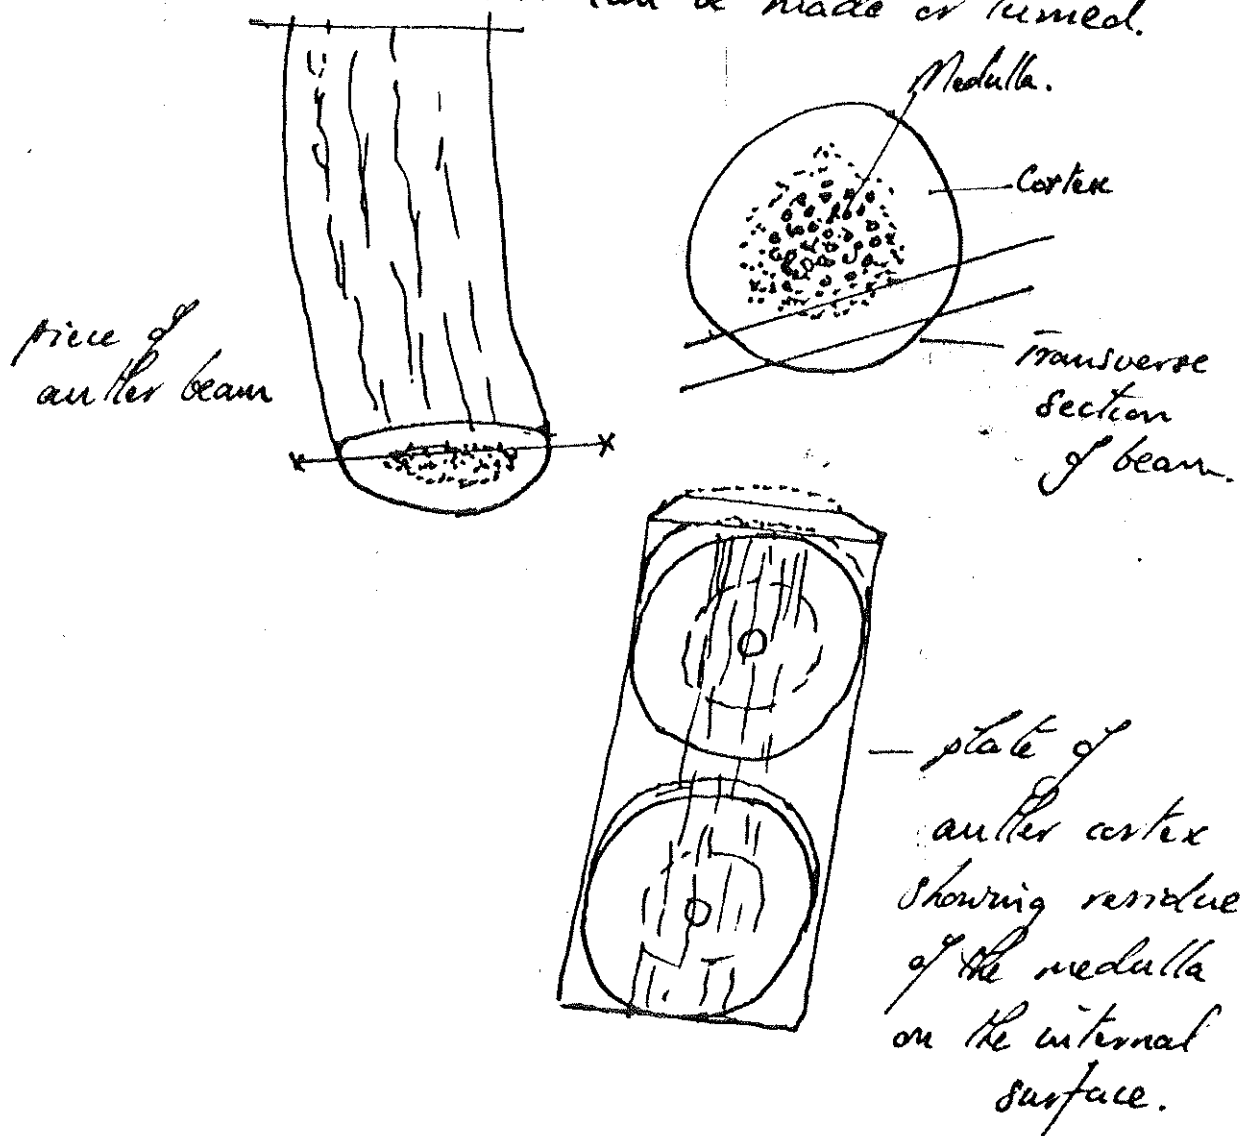 can be made or turned.
Medulla.
Cortex
piece of
antler beam
Transverse
section
of beam.
plate of
antler cortex
showing residue
of the medulla
on the internal
surface.